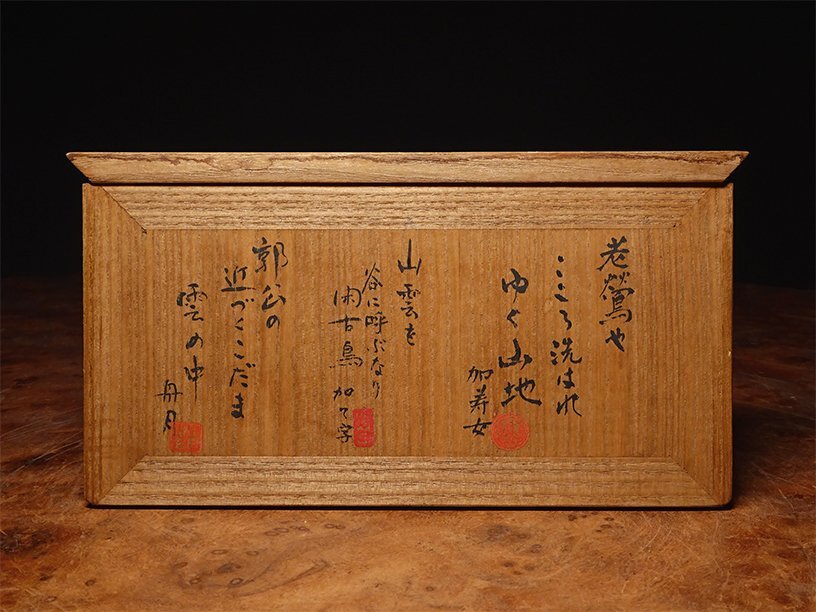 老鶯や
こころ洗はれ
ゆく山地
加寿女
山雲を
谷に呼ぶなり
閑古鳥
加て字
郭公の
近づくこだま
雲の中
丹月